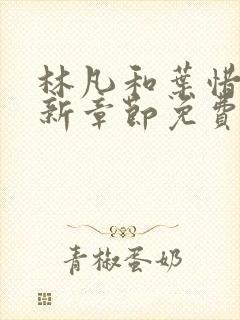 林凡和葉惜
新章節免費
青椒蛋奶